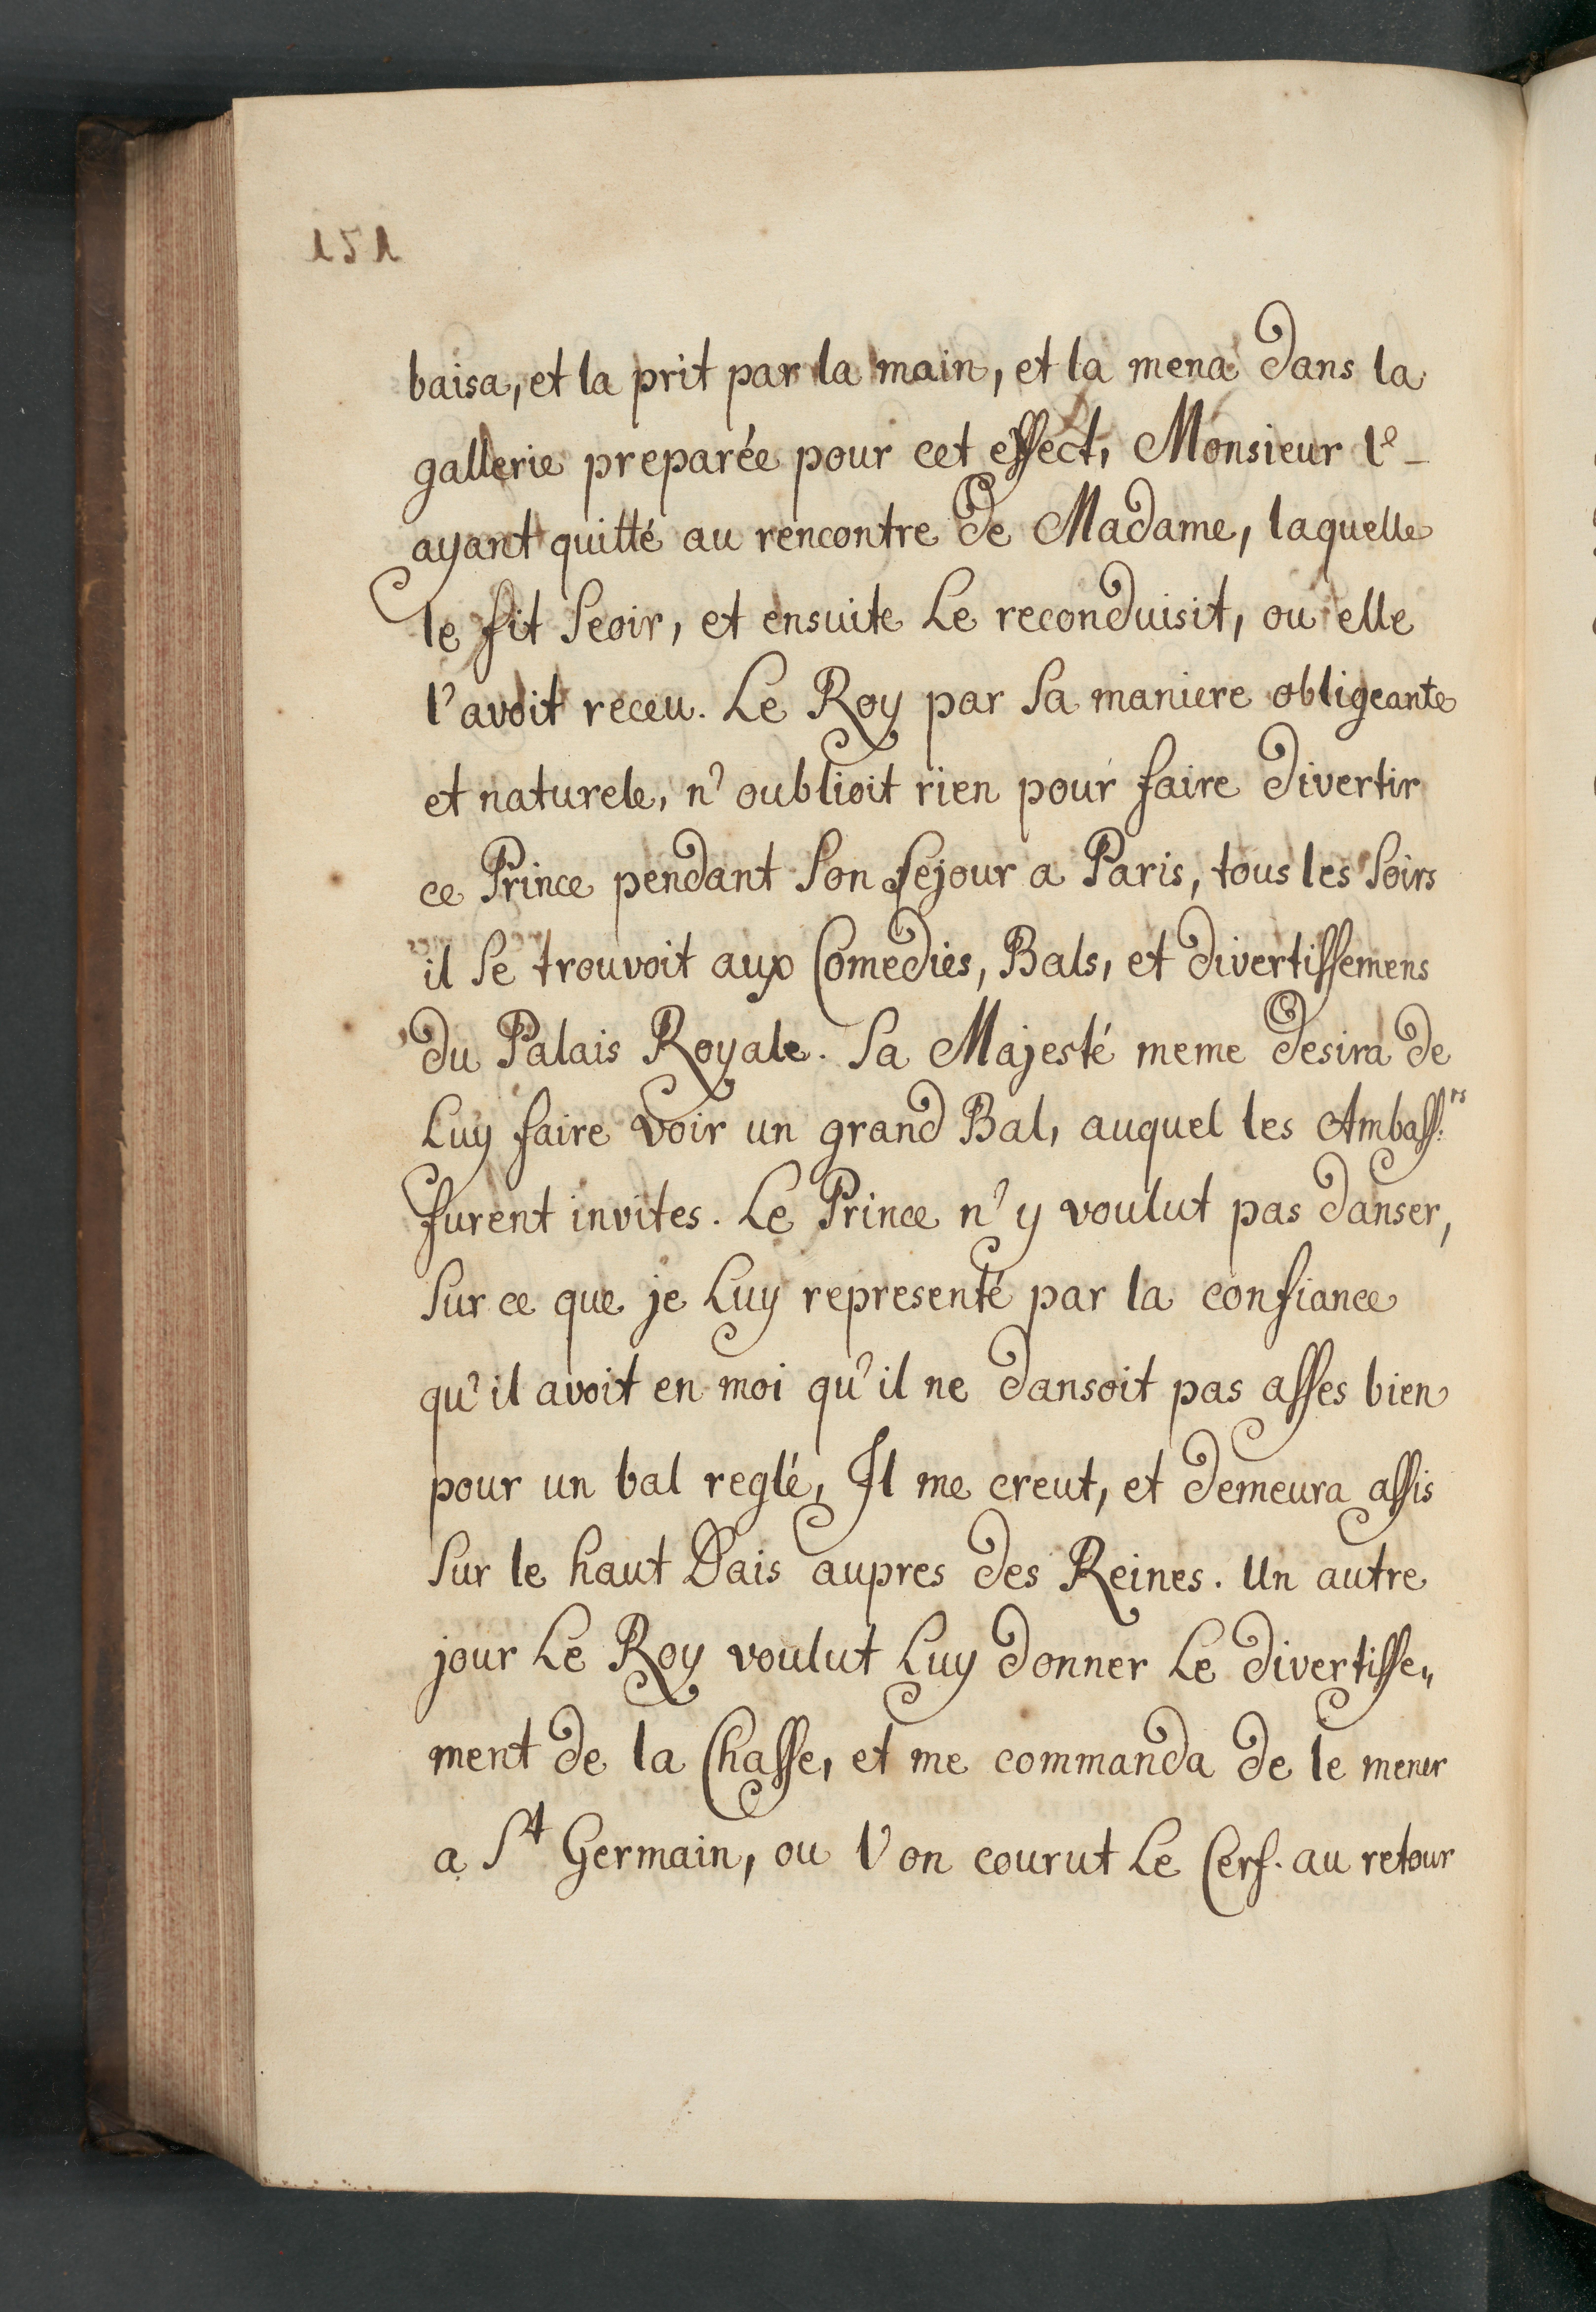 151
baisa, et la prit par la main, et la mena dans la
gallerie preparée pour cet effect, Monsieur l'-
ayant quitté au rencontre de Madame, laquelle
le fit seoir, et ensuite Le reconduisit, ou elle
l'avoit receu. Le Roy par sa maniere obligeante
et naturele, n'oublioit rien pour faire divertir
ce Prince pendant son sejour a Paris, tous les soirs
il se trouvoit aux Comedies, Bals, et divertissemens
du Palais Royale. Sa Majesté meme desira de
Luy faire voir un grand Bal, auquel les Ambass:rs
furent invites. Le Prince n'y voulut pas danser,
sur ce que je Luy representé par la confiance
qu'il avoit en moi qu'il ne dansoit pas asses bien
pour un bal reglé, Il me creut, et demeura assis
sur le haut Dais aupres des Reines. Un autre
jour Le Roy voulut Luy donner Le divertisse„
ment de la Chasse, et me commanda de le mener
a St Germain, ou l'on courut Le Cerf. au retour